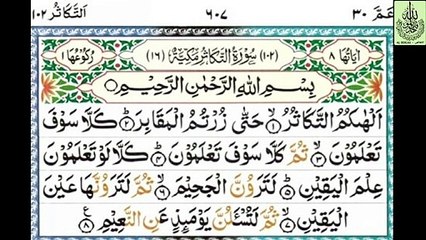 عَمَّ ٣٠
٦٠٧
اَلتَّكَاثُرُ ١٠٢
اٰيَاتُهَا ٨
(١٠٢) سُوْرَةُ التَّكَاثُرِ مَكِّيَّةٌ (١٦)
رُكُوْعُهَا ١
بِسْمِ اللّٰهِ الرَّحْمٰنِ الرَّحِيْمِ
اَلْهٰىكُمُ التَّكَاثُرُ ۙ١ حَتّٰى زُرْتُمُ الْمَقَابِرَ ؕ٢ كَلَّا سَوْفَ
تَعْلَمُوْنَ ۙ٣ ثُمَّ كَلَّا سَوْفَ تَعْلَمُوْنَ ؕ٤ كَلَّا لَوْ تَعْلَمُوْنَ
عِلْمَ الْيَقِيْنِ ؕ٥ لَتَرَوُنَّ الْجَحِيْمَ ۙ٦ ثُمَّ لَتَرَوُنَّهَا عَيْنَ
الْيَقِيْنِ ۙ٧ ثُمَّ لَتُسْـَٔلُنَّ يَوْمَئِذٍ عَنِ النَّعِيْمِ ٨